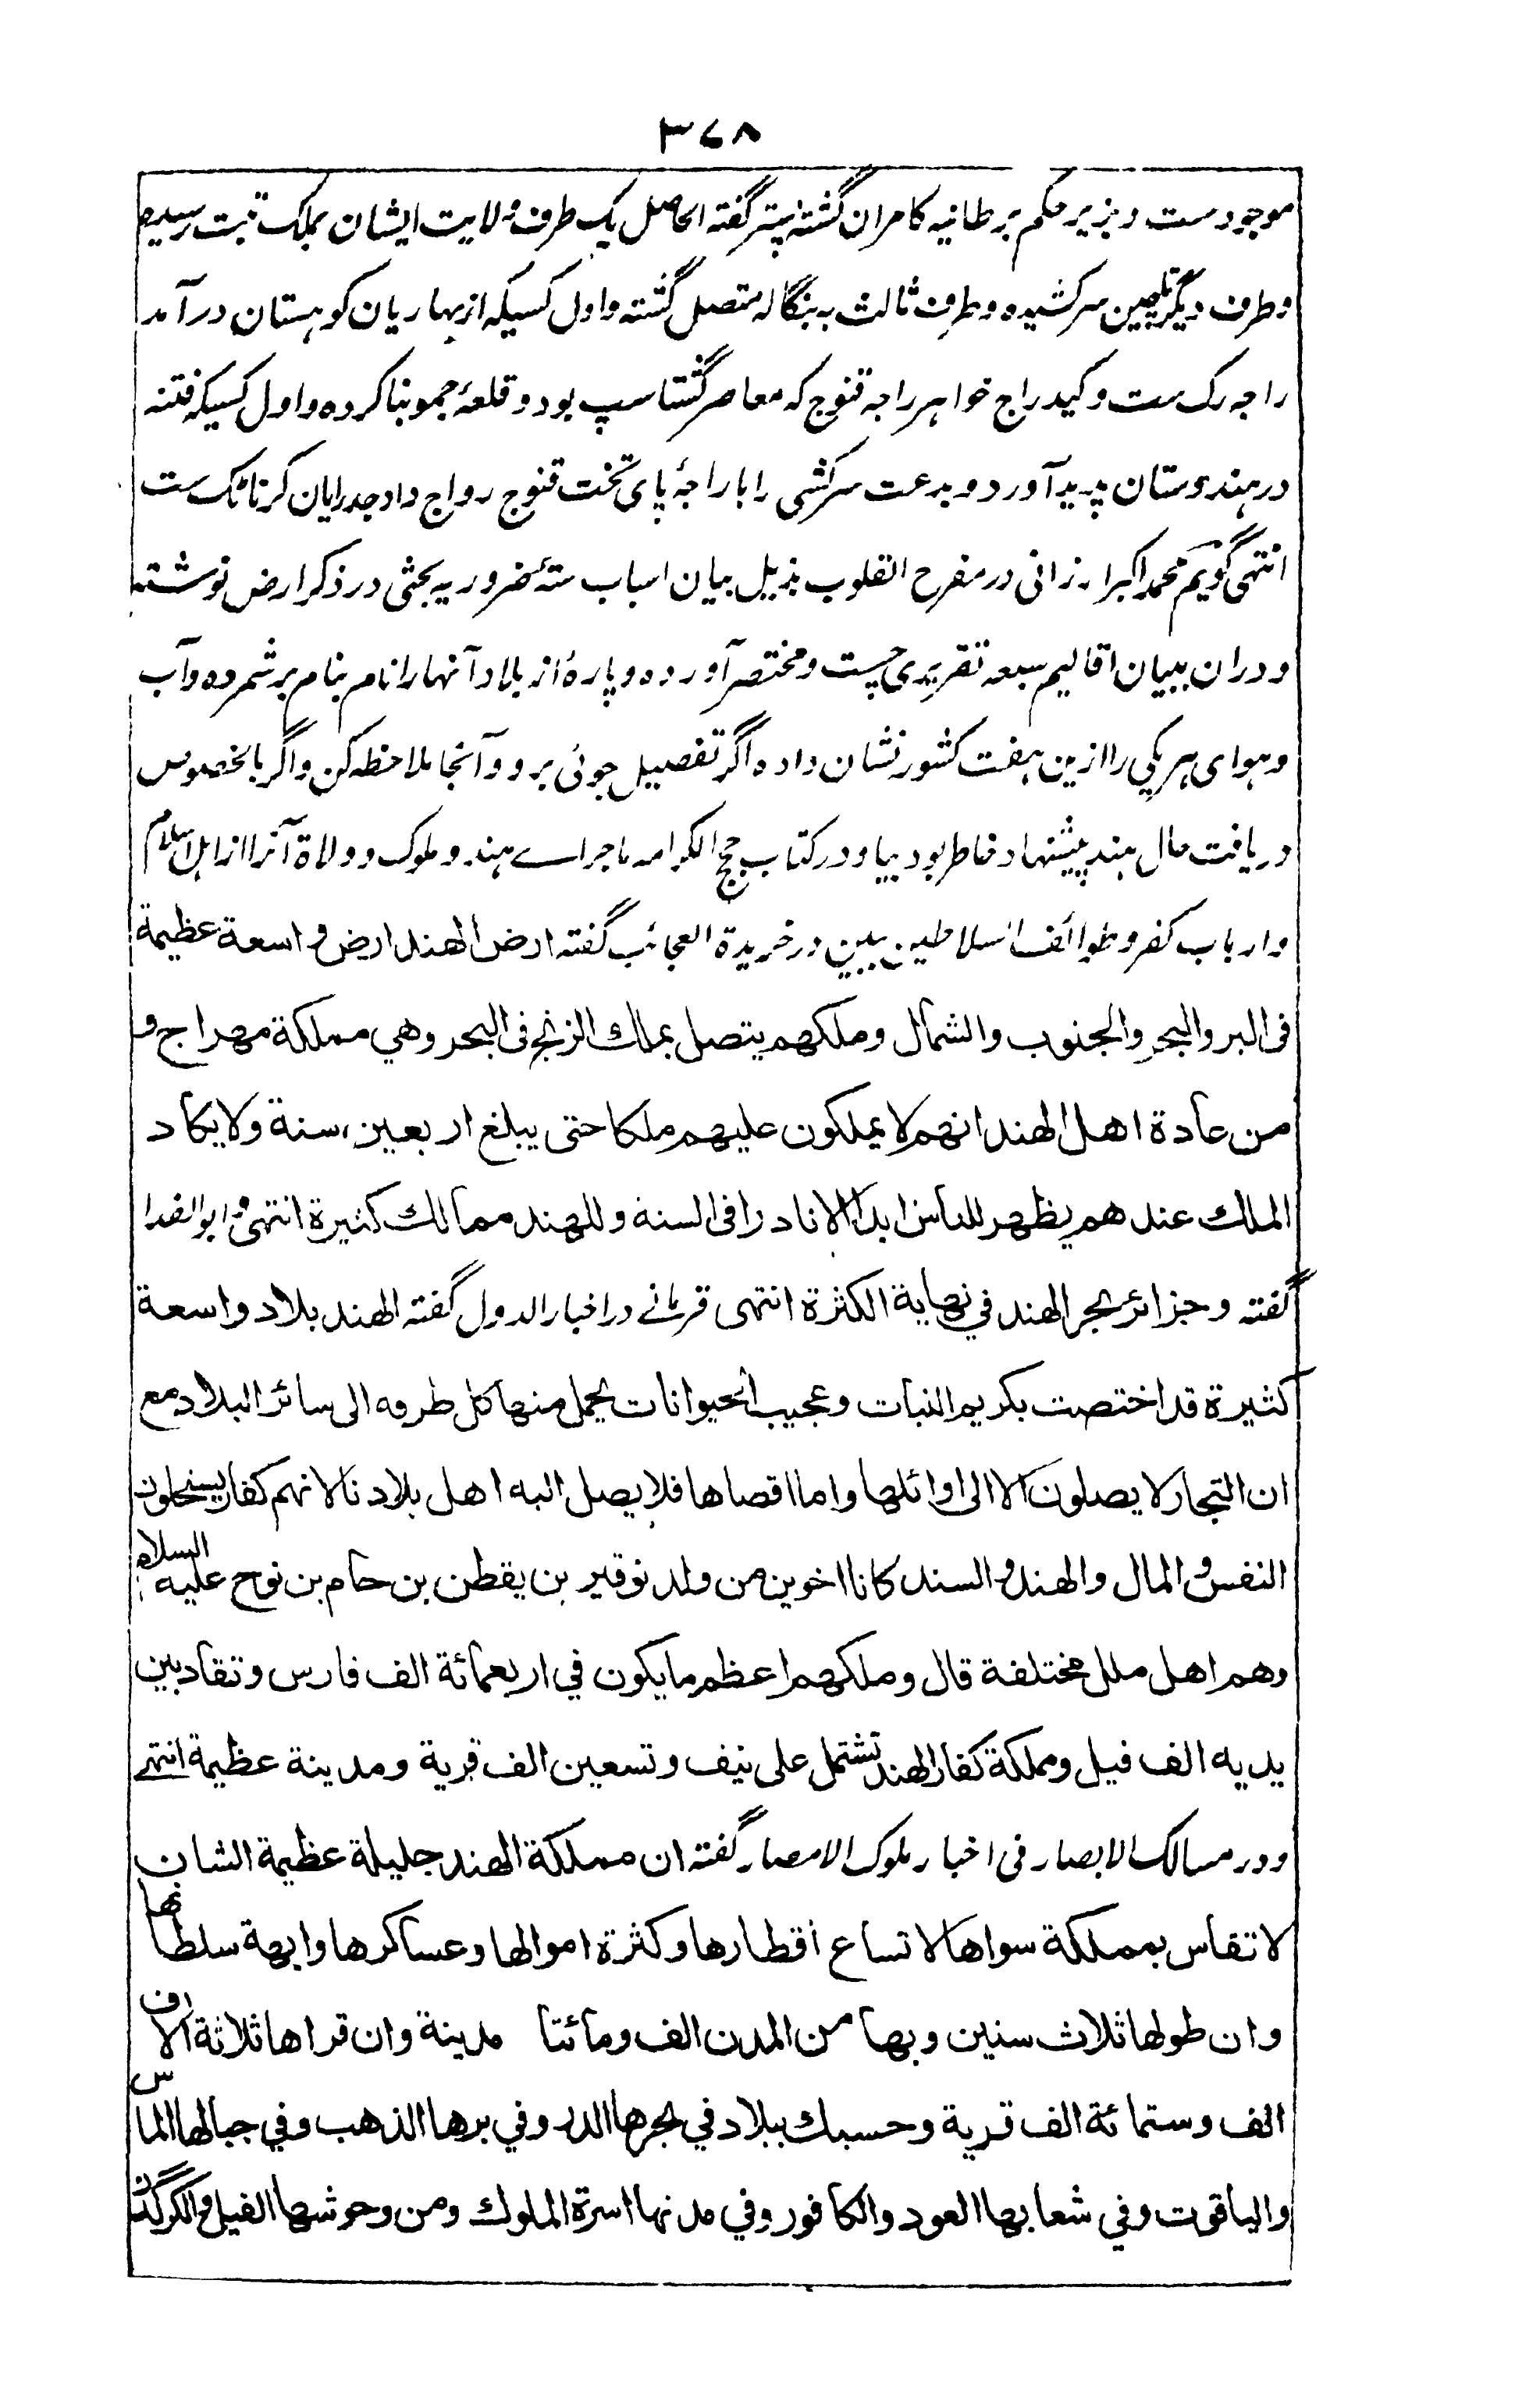 ۳۷۸
موجودست و بزیر حکم برطانیه کامران گشته پیشتر گفته الحاصل یک طرف ولایت ایشان بملک تبت رسیده
و طرف دیگر بچین سرکشیده و طرف ثالث به بنگاله متصل گشته و اول کسیکه از پهاریان کوهستان درآمد
راجه رک ست و کیدراج خواهر راجه قنوج که معاصر گشتاسپ بود و قلعۀ جمو بنا کرده و اول کسیکه فتنه
در هندوستان پدید آورد و بدعت سرکشی را با راجۀ پای تخت قنوج رواج داد جد رایان کرناٹک ست
انتهی گویم محمد اکبر ارزانی در مفرح القلوب بذیل بیان اسباب ستۀ ضروریه بحثی در ذکر ارض نوشته
و دران ببیان اقالیم سبعه تقریری چست و مختصر آورده و پارۀ از بلاد آنها را نام بنام برشمرده و آب
و هوای هر یکی را ازین هفت کشور نشان داده اگر تفصیل جوئی برو و آنجا ملاحظه کن و اگر بالخصوص
دریافت حال هند پیشنهاد خاطر بود بیا و در کتاب حجج الکرامه ماجرای هند و ملوک و ولاة آنرا از اهل اسلام
و ارباب کفر و طوائف السلاطین ببین در خریدة العجائب گفته ارض الهند ارض واسعة عظیمة
فی البر والبحر والجنوب والشمال وملکهم یتصل بملك الزنج فی البحر وهی مملکة مهراج و
من عادة اهل الهند انهم لا یملکون علیهم ملکا حتی یبلغ اربعین سنة ولا یکاد
الملك عندهم یظهر للناس ابدا الا نادرا فی السنة وللهند ممالك کثیرة انتهی و ابوالفدا
گفته و جزائر بحر الهند فی نهایة الکثرة انتهی قرمانی در اخبار الدول گفته الهند بلاد واسعة
کثیرة قد اختصت بکریم النبات وعجیب الحیوانات یحمل منها کل طرفه الی سائر البلاد مع
ان التجار لا یصلون الا الی اوائلها واما اقصاها فلا یصل الیه اهل بلادنا لانهم کفار یستحلون
النفس والمال والهند والسند کانا اخوین من ولد نوقیر بن یقطن بن حام بن نوح علیه السلام
وهم اهل ملل مختلفة قال وملکهم اعظم ما یکون فی اربعمائة الف فارس وتقاد بین
یدیه الف فیل ومملکة کفار الهند تشتمل علی نیف وتسعین الف قریة ومدینة عظیمة انتهی
و در مسالک الابصار فی اخبار ملوک الامصار گفته ان مملکة الهند جلیلة عظیمة الشان
لا تقاس بمملکة سواها لا تساع اقطارها وکثرة اموالها وعساکرها وابهة سلطانها
وان طولها ثلاث سنین وبها من المدن الف ومائتا مدینة وان قراها ثلاثة الاف
الف وستمائة الف قریة وحسبك ببلاد فی بحرها الدر وفی برها الذهب وفی جبالها الماس
والیاقوت وفی شعابها العود والکافور وفی مدنها اسرة الملوك ومن وحوشها الفیل والکرکدن